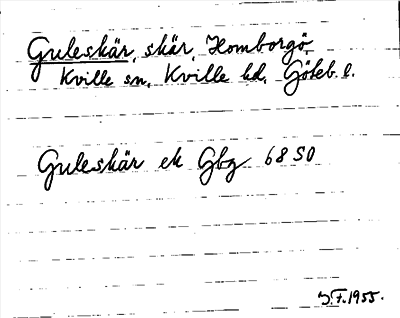 Guleskär, skär, Homborgö,
Kville sn, Kville hd, Göteb. l.
Guleskär ek Gbg 68 SO
J.F. 1955.